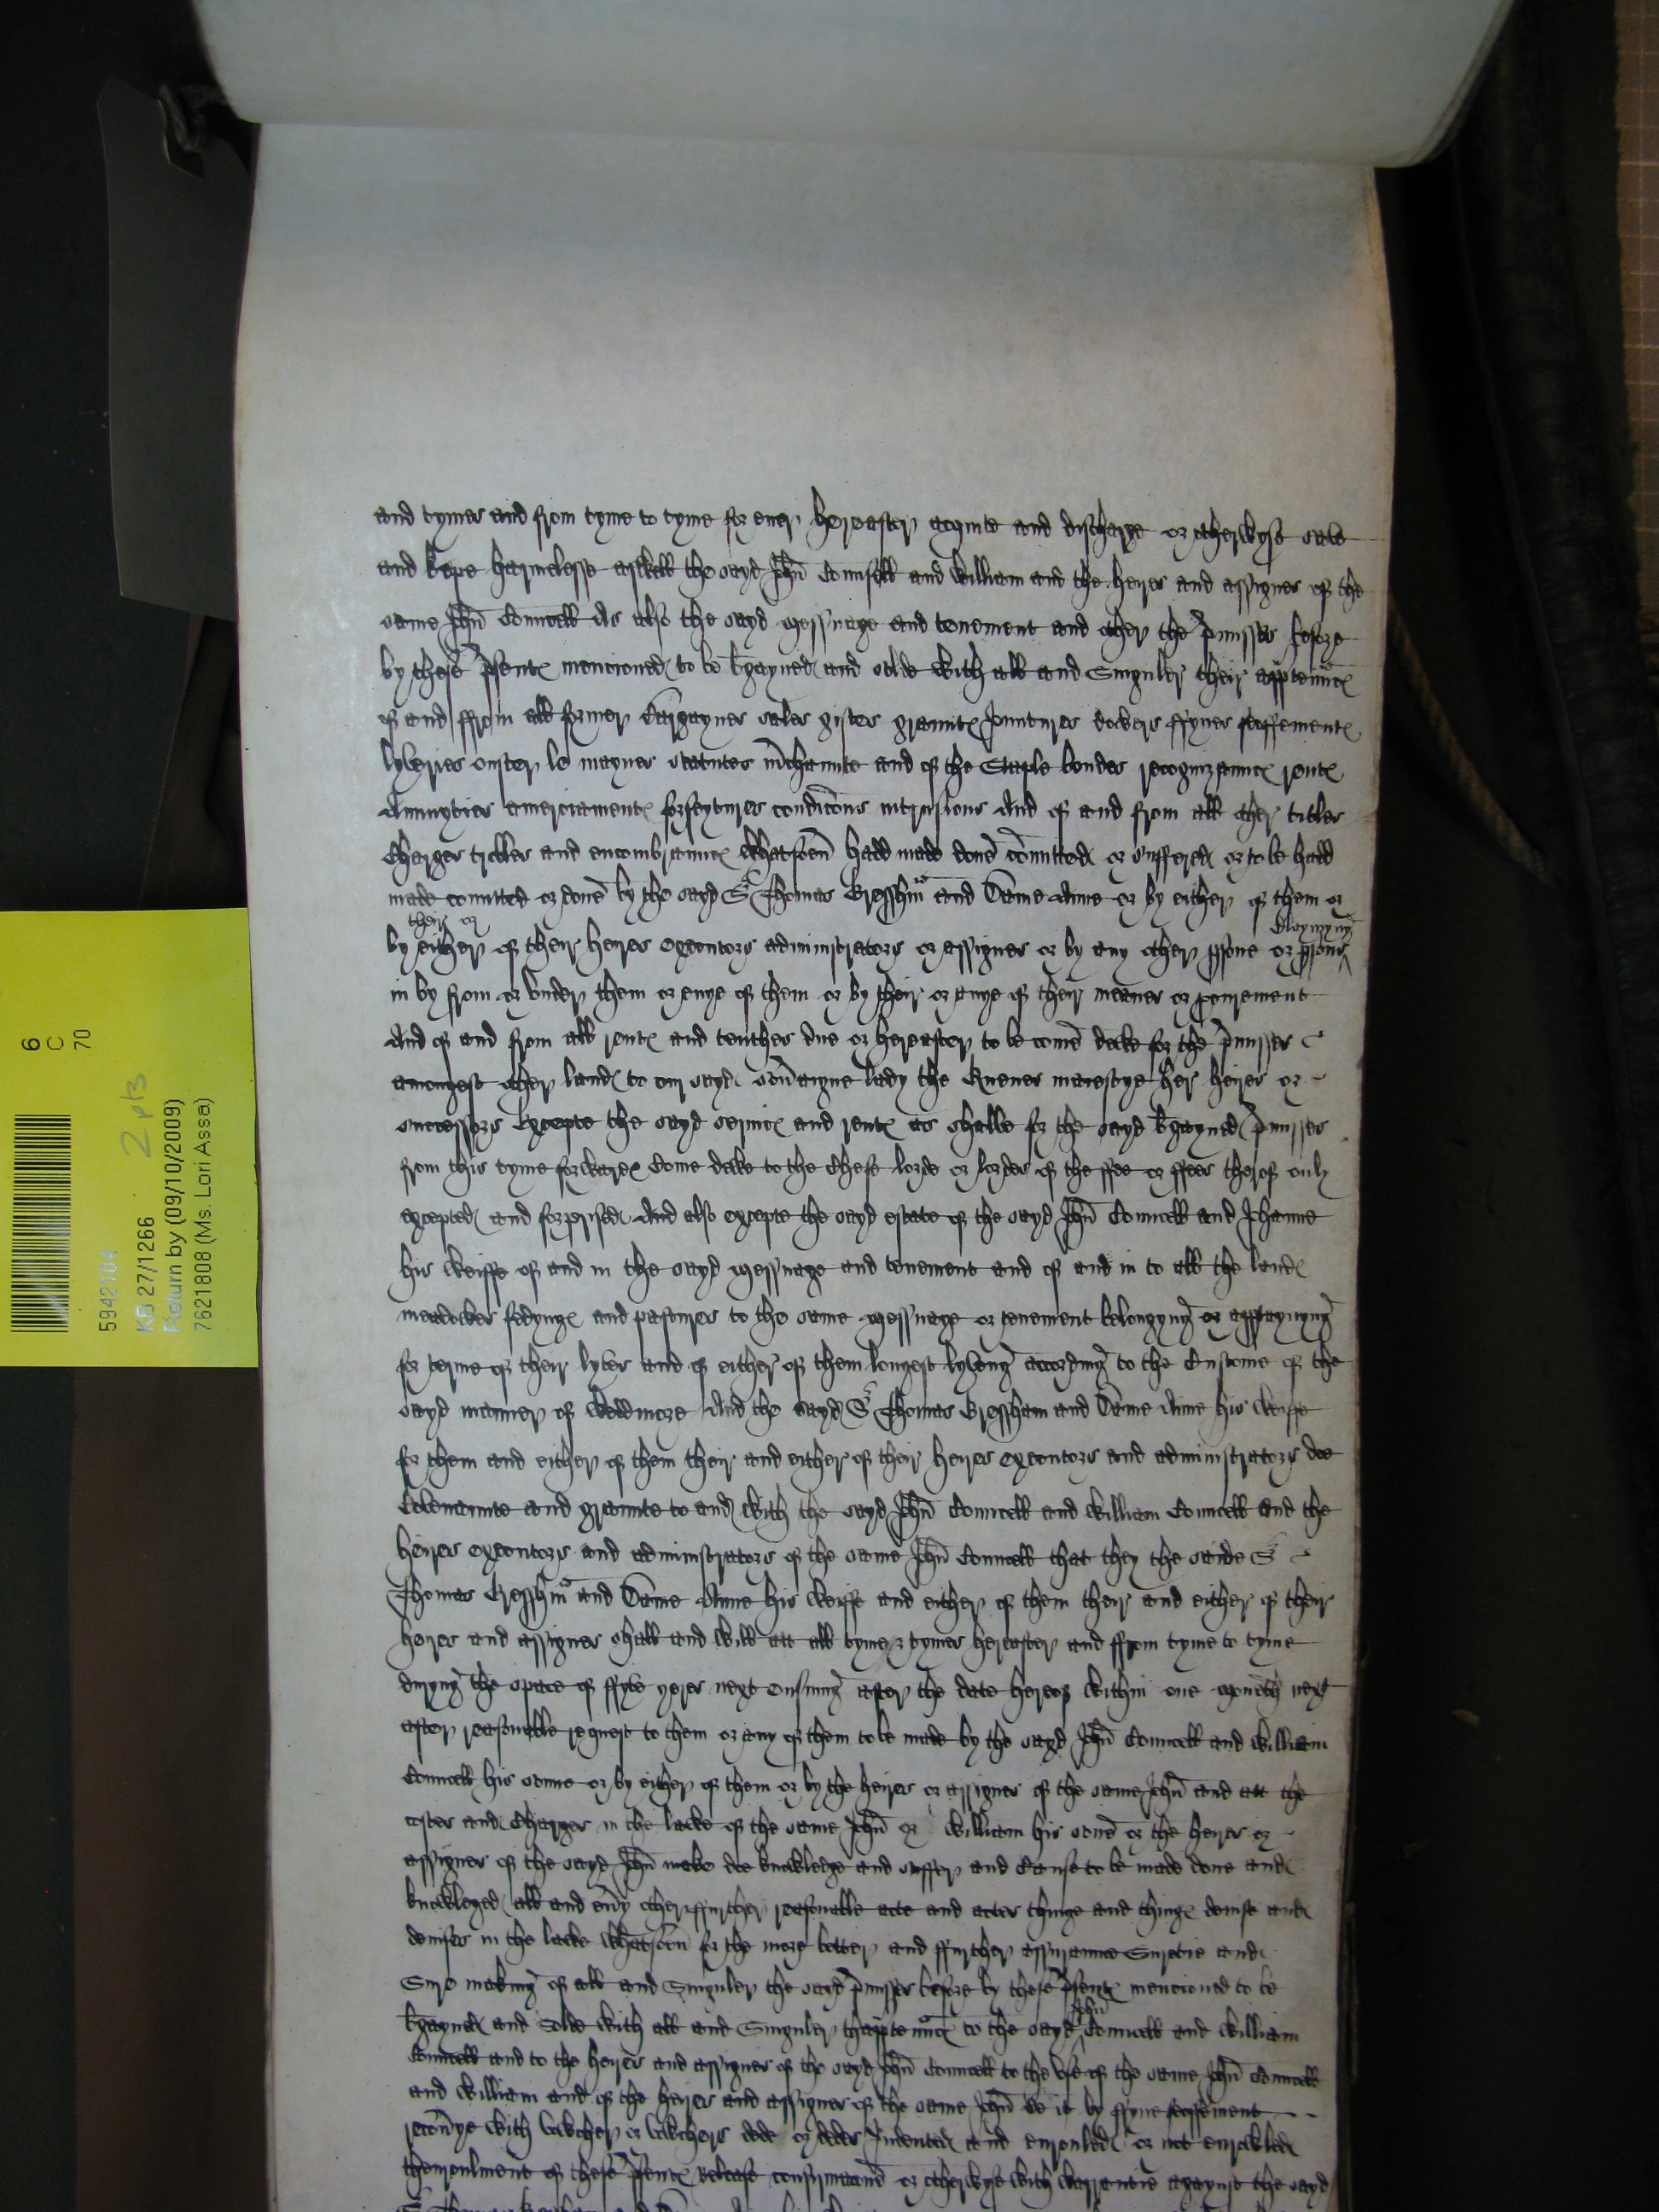 and tymes and from tyme to tyme for ever hereafter acquite and discharge or otherwyse save
and kepe harmelesse aswell the sayd John Councell and William and the heires and assignes of the
same John Councell As also the sayd messuage and tenement and other the pmisses before
by these psents mencioned to be bargayned and solde with all and Singuler their apptenncs
of and ffrom all former Bargaynes sales giftes graunts Jountures dowers ffynes feoffements
lyveries ouster le maynes statutes mchaunte and of the Staple bondes recognizauncs rents
Annuyties amerciaments forfeytures condicons intrusions And of and from all other titles
Charges trobles and encombrauncs whatsoevr hadd made done comitted or suffered or to be hadd
made comitted or done by the sayd Sr Thomas Gresshm and Dame Anne or by either of them or
by either their or of their heires executors administrators or assignes or by any other psone or psons Claymyng
in by from or under them or enye of them or by their or enye of their meanes or pcurement
And of and from all rents and tenthes due or hereafter to be come dewe for the pmisses
amongest other lands to our sayd sovraigne lady the Quenes maiestye her heires or
successors Excepte the sayd servics and rents as shalbe for the sayd bargayned pmisses
from this tyme forwards Come dewe to the Chefe lorde or lordes of the ffee or ffees therof only
excepted and forprised And also excepte the sayd estate of the sayd John Councell and Johanne
his weiffe of and in the sayd messuage and tenement and of and in to all the lands
meadowes fedyngs and pastures to the same messuage or tenement belongyng or appteynyng
for terme of their lyves and of either of them longest lyveng accordyng to the Custome of the
sayd manner of Weddmore And the sayd Sr Thomas Gressham and Dame Anne his weiffe
for them and either of them their and either of their heires executors and administrators doe
Covenaunte and graunte to and with the sayd John Councell and William Councell and the
heires executors and administrators of the same John Councell that they the saide Sr
Thomas Gresshm and Dame Anne his weiffe and either of them their and either of their
heires and assignes shall and will att all tyme & tymes hereafter and ffrom tyme to tyme
duryng the space of ffyve yeres next ensuing after the date hereof within one moneth next
after reasonable request to them or any of them to be made by the sayd John Councell and William
Councell his sonne or by either of them or by the heires or assignes of the same John and att the
costes and Charges in the lawe of the same John or William his sone or the heires or
assignes of the sayd John make doe knowledge and suffer and Cause to be made done and
knowleged all and evry other ffurther reasonable acte and actes thinge and things devise and
devises in the lawe whatsoevr for the more better and ffurther assuraunce Suretie and
Sure making of all and Singuler the sayd pmisses before by these psents mencioned to be
bargayned and Solde with all and Singuler thapptenncs to the sayd John Councell and William
Councell and to the heires and assignes of the sayd John Councell to the use of the same John Councell
and William and of the heires and assignes of the same John be it by ffyne feoffement
recovrye with vowcher or vowchers dede or dedes Indented and enrouled or not enrowled
thenroulment of these psents Release confirmacon or otherwyse with warrantie agaynst the sayd
6
C
70
2 pts
5942104
KB 27/1266
Return by (09/10/2009)
7621808 (Ms. Lori Assa)